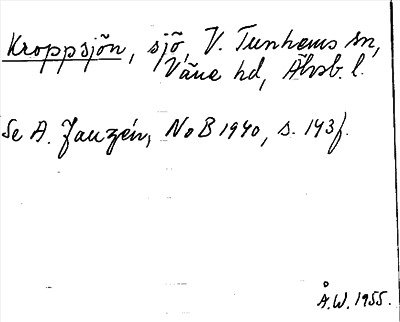 Kroppsjön, sjö, V. Tunhems sn,
Väne hd, Älvsb. l.
Se A. Janzén, NoB 1940, s. 143f.
Å.W. 1955.